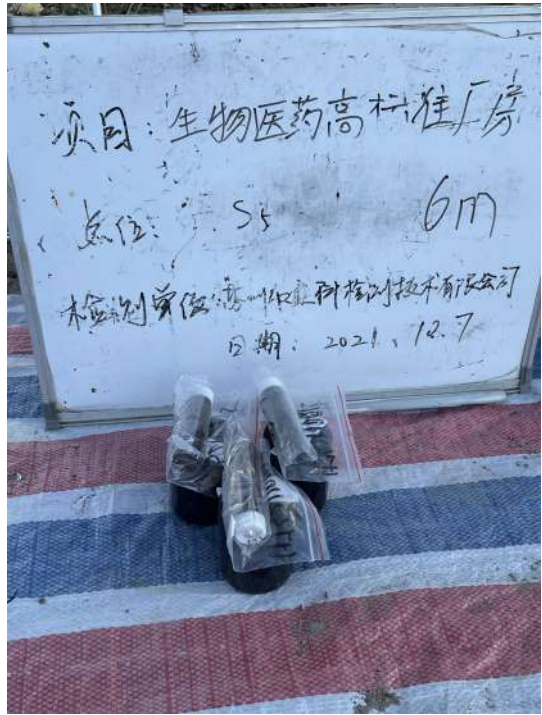 项目：生物医药高标准厂房
点位：S5 6m
检测单位：苏州 科检测技术有限公司
日期：2021.12.7